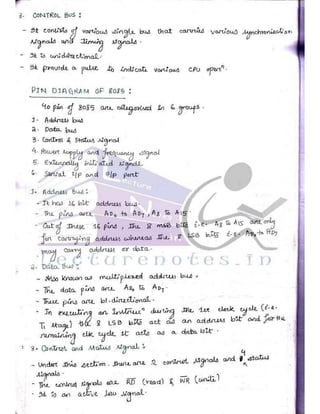 3. CONTROL BUS :
- It consists of various single bus that carries various synchronisation
signals and timing signals.
- It is unidirectional.
- It provide a pulse to indicate various CPU opern.
PIN DIAGRAM OF 8085 :
40 pin of 8085 are categorised in 6 groups.
1. Address bus
2. Data bus
3. Control & status signal
4. Power supply and frequency signal
5. Externally initiated signal
6. Serial I/p and O/p port
1. Address Bus :
- It has 16 bit address bus
- The pins are AD0 to AD7, A8 to A15
- Out of these 16 pins, the 8 msb bits i.e. A8 to A15 are only
for carrying address whereas the 8 LSB bits i.e. AD0 to AD7
may carry address or data.
lecturenotes.in
2. Data Bus :
- Also known as multiplexed address bus.
- The data pins are AD0 to AD7.
- These pins are bi-directional.
- In executing an instruction during the 1st clock cycle (i.e.
T1 stage) the 8 LSB bits act as an address bit and for the
remaining clk cycle it acts as a data bit.
3. Control and status signal :
- Under this section, there are 2 control signals and 4 status
signals.
- The control signals are RD (read) & WR (write)
- It is an active low signal.